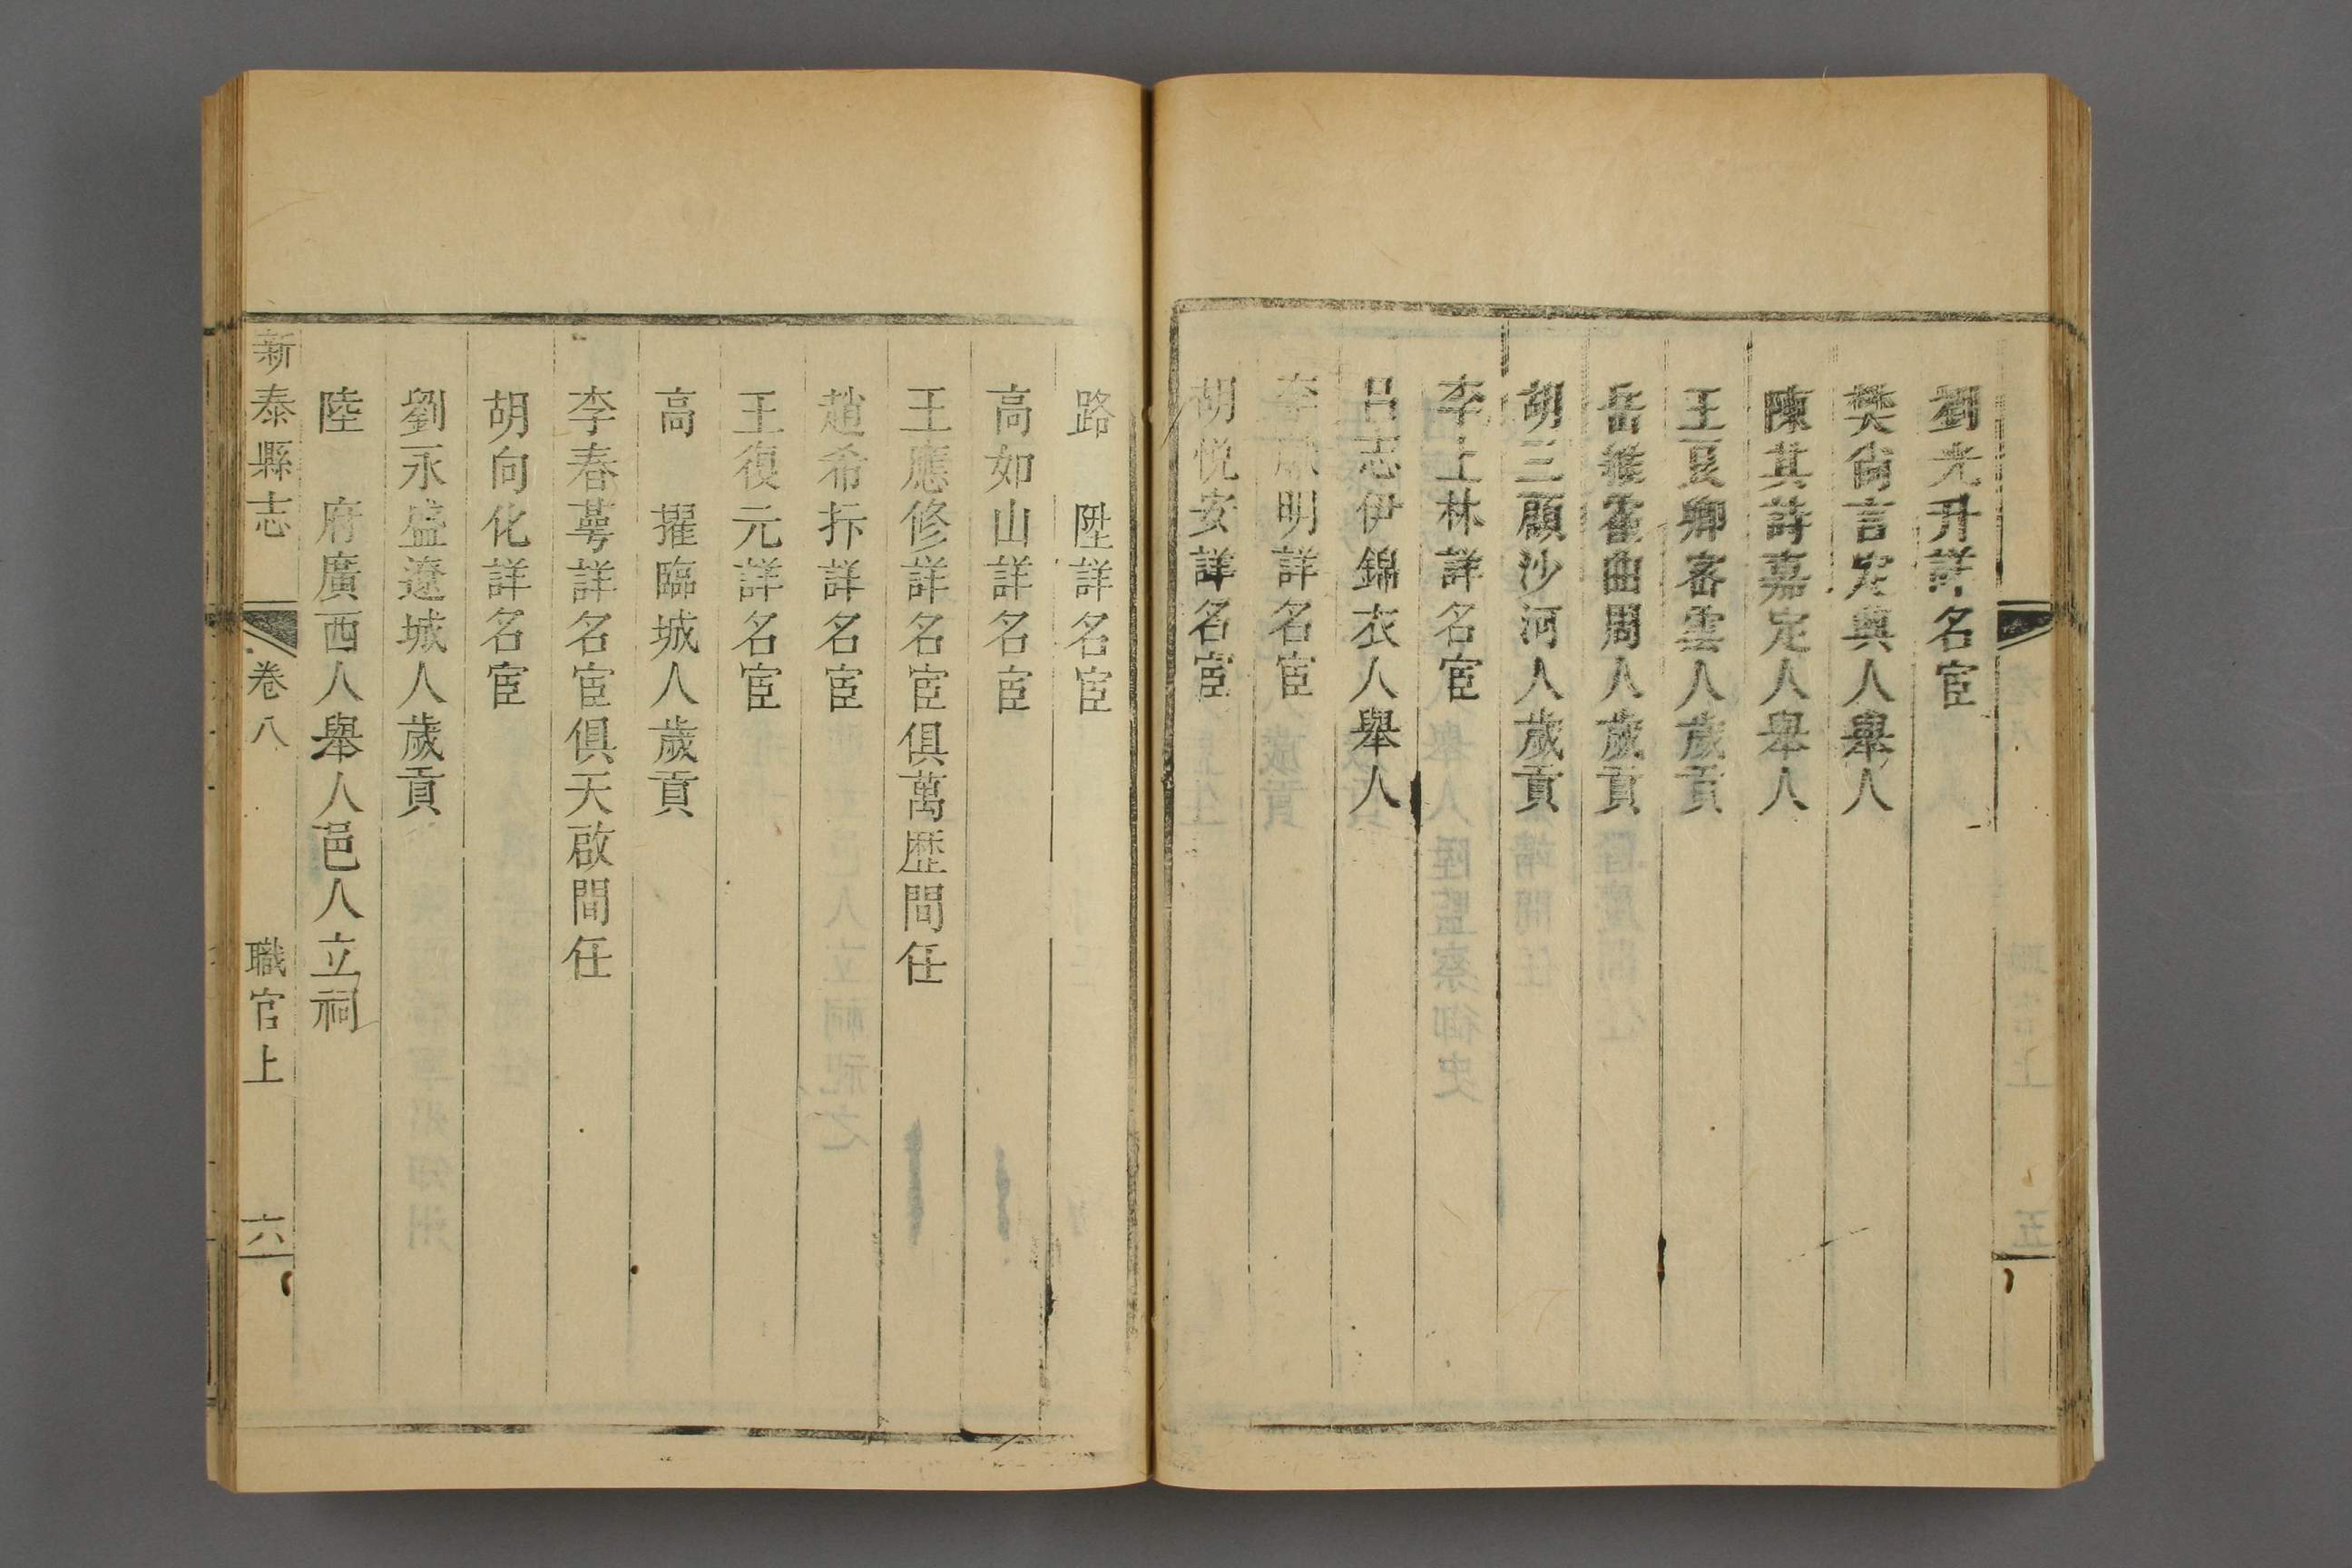 劉光升詳名宦
樊尙言定興人舉人
陳其詩嘉定人舉人
王夏卿密雲人歲貢
岳維霍曲周人歲貢
胡三顧沙河人歲貢
李上林詳名宦
呂志伊錦衣人舉人
李 明詳名宦
胡悅安詳名宦
路 陞詳名宦
高如山詳名宦
王應修詳名宦俱萬歷間任
趙希抃詳名宦
王復元詳名宦
高 擢臨城人歲貢
李春蕚詳名宦俱天啟間任
胡向化詳名宦
劉永盛遼城人歲貢
陸 府廣西人舉人邑人立祠
新泰縣志 卷八 職官上 六